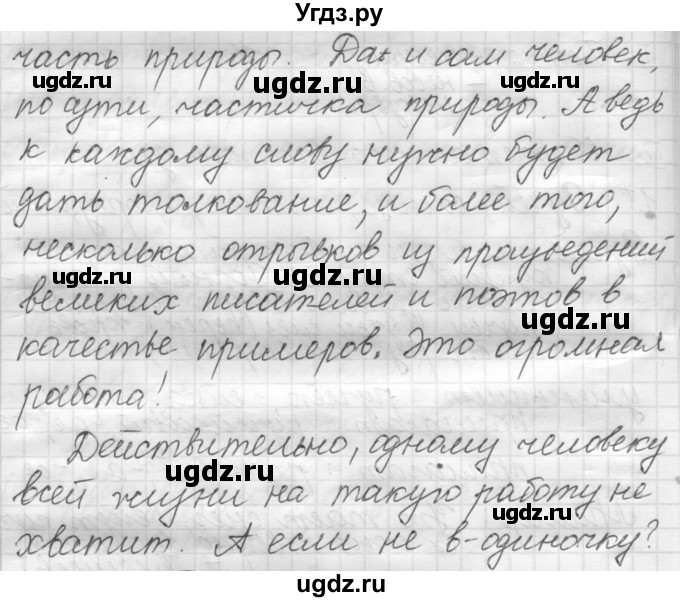 Угдз.ру
часть природы. Да и сам человек,
по сути, частичка природы. А ведь
к каждому слову нужно будет
дать толкование, и более того,
несколько отрывков из произведений
великих писателей и поэтов в
качестве примеров. Это огромная
работа!
Действительно, одному человеку
всей жизни на такую работу не
хватит. А если не в-одиночку?
ugdz.ru
ugdz.ru
ugdz.ru
ugdz.ru
ugdz.ru
ugdz.ru
ugdz.ru
ugdz.ru
ugdz.ru
ugdz.ru
ugdz.ru
ugdz.ru